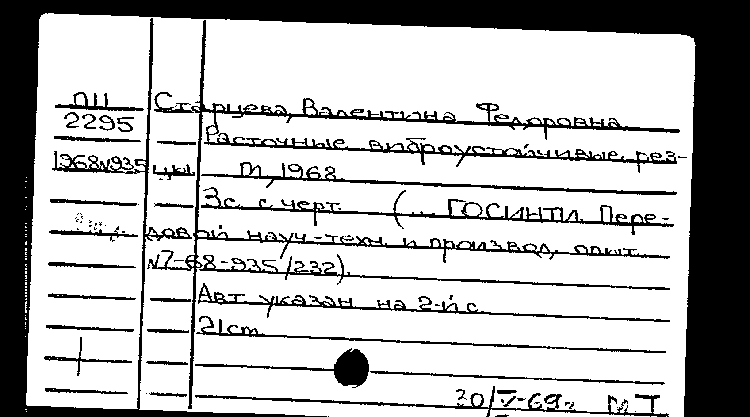 ПII Старцева, Валентина Федоровна
2295 Расточные виброустойчивые рез-
1968№935 цы. М, 1968.
3с. с черт. (... ГОСИНТИ. Пере-
довой науч.-техн. и производ. опыт.
№7-68-935/232).
Авт. указан на 2-й с.
21см.
30/V-69г. МТ